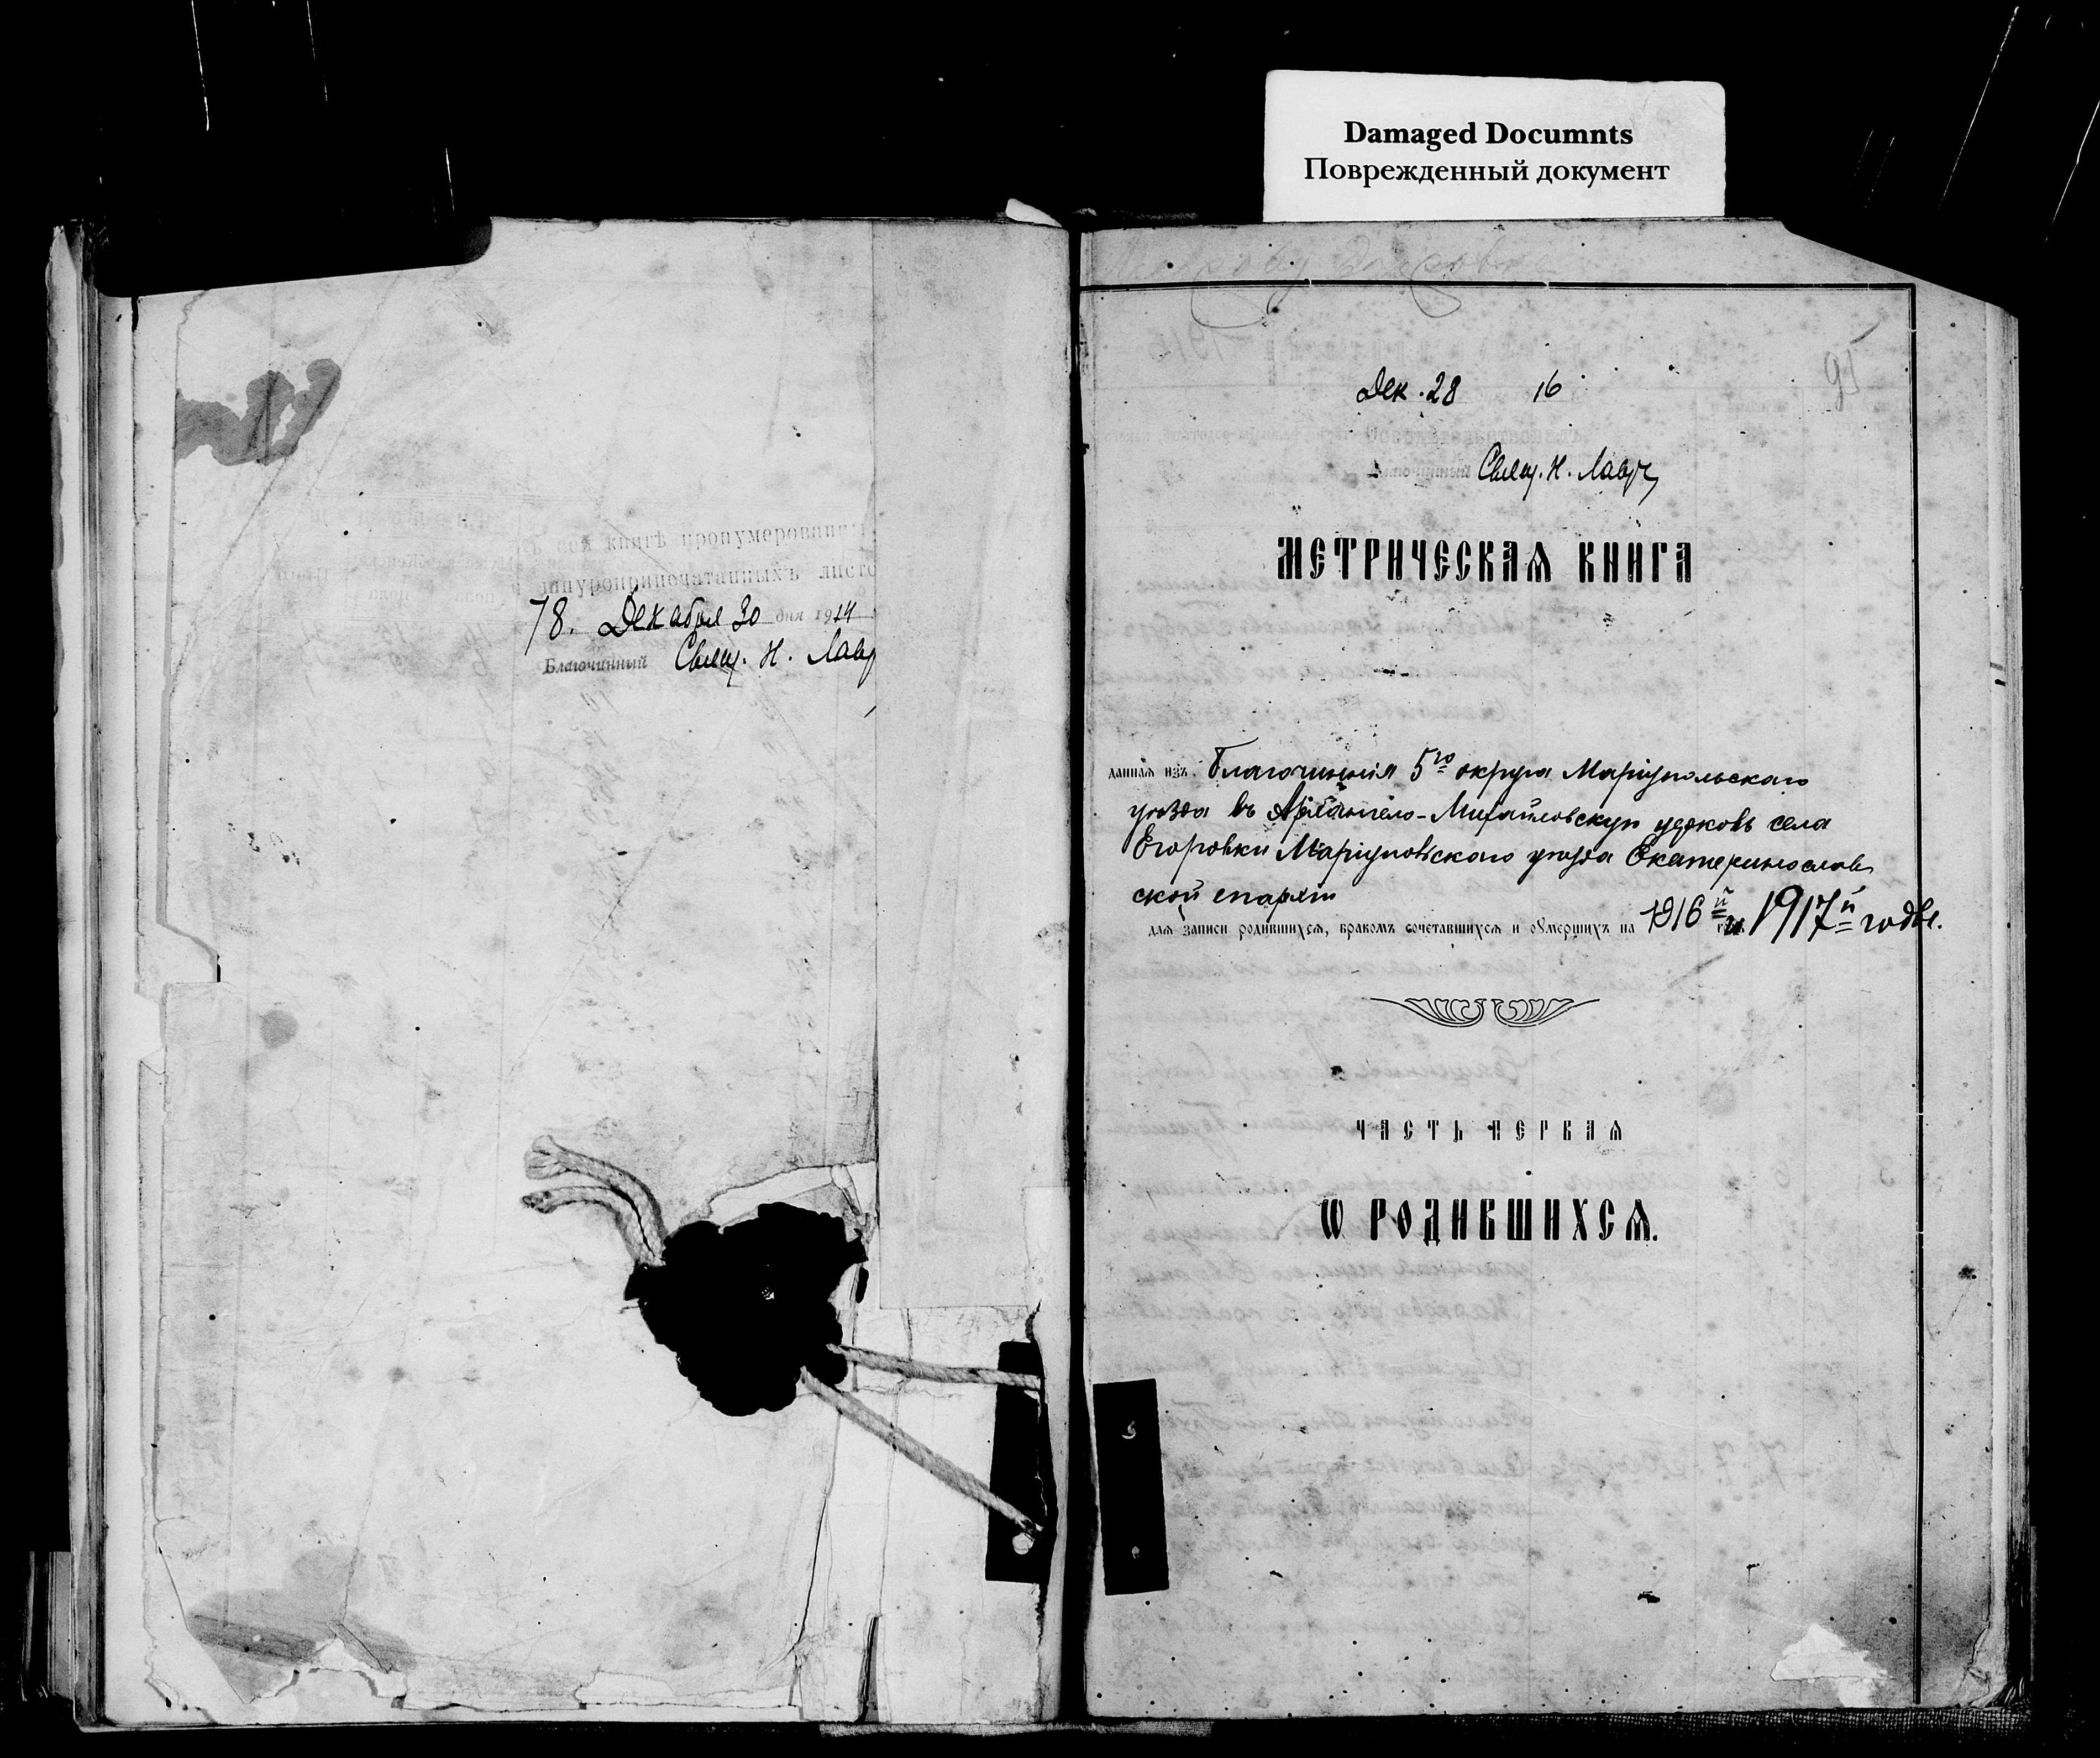 Damaged Documnts
Поврежденный документ
сей книгѣ пронумерован
шнуроприпечатанныхъ листо
78. Декабря 30 дня 1914
Благочинный Свящ. Н. Лавр
95
Дек. 28 16
Благочинный Свящ. Н. Лавр
МЕТРИЧЕСКАѦ КНИГА
даннаѧ изъ Благочинія 5го округа Маріупольскаго
уѣзда въ Архангело-Михайловскую церковь села
Егоровки Маріупольскаго уѣзда Екатеринослав
ской епархіи
длѧ записи родившихсѧ, бракомъ сочетавшихсѧ и оумершихъ на 1916й и 1917й годы.
ЧАСТЬ ПЕРВАѦ
Ѡ РОДИВШИХСѦ.